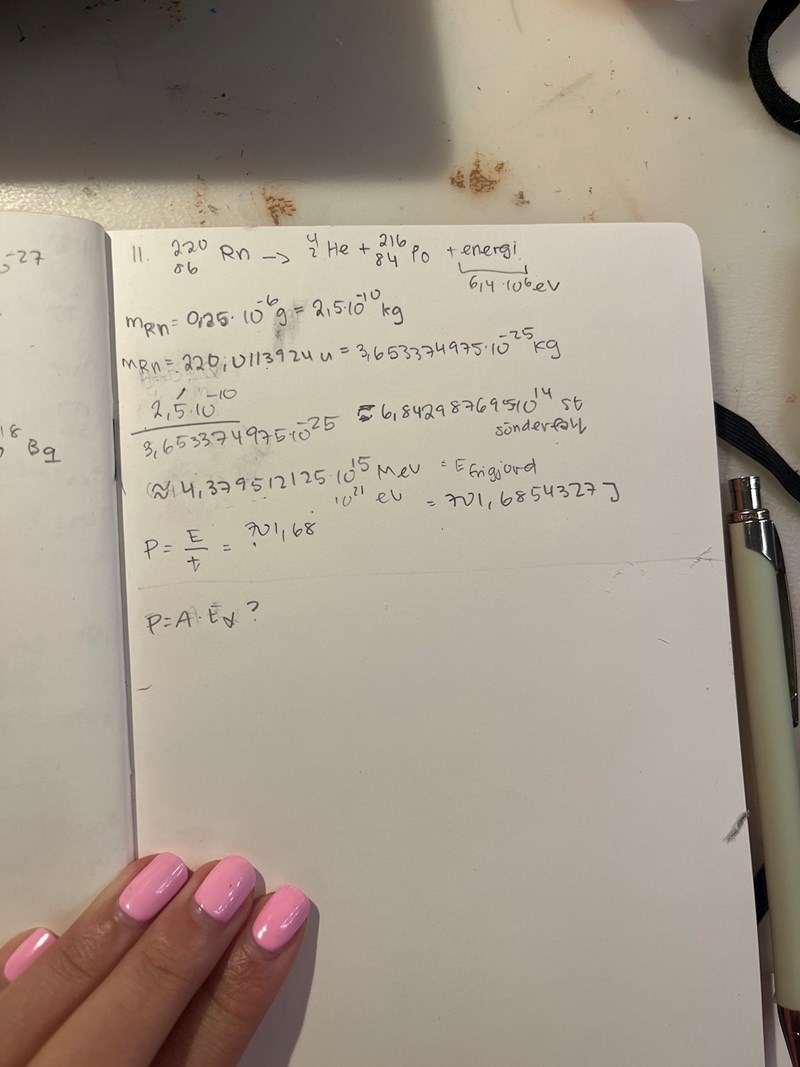 5-27
18 Bq
11. 220 86 Rn -> 4 2 He + 216 84 Po + energi
6,4·10^6 eV
mRn = 0,25·10^-6 g = 2,5·10^-10 kg
mRn = 220,0113924 u = 3,653374975·10^-25 kg
2,5·10^-10
3,653374975·10^-25 ≈ 6,842987695·10^14 st
sönderfall
(≈) 4,379512125·10^15 MeV = E frigjord
10^21 eV = 701,6854327 J
P = E/t = 701,68
P = A·Eα ?